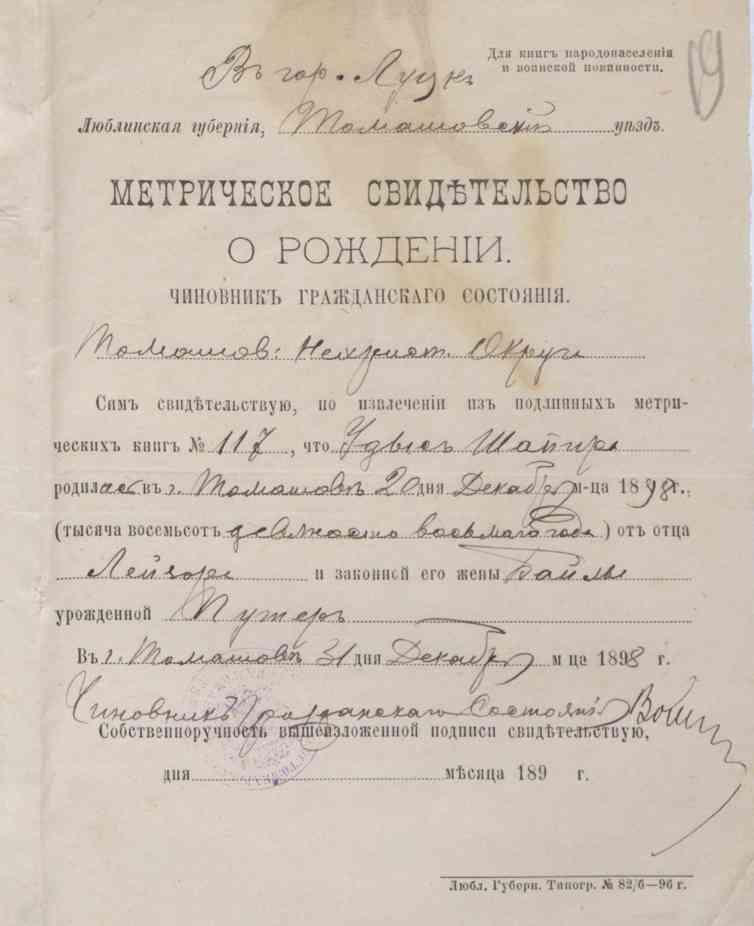 Для книгъ народонаселенія
и воинской повинности.
19
Въ гор. Луцкъ
Люблинская губернія, Томашовскій уѣздъ.
МЕТРИЧЕСКОЕ СВИДѢТЕЛЬСТВО
О РОЖДЕНІИ.
ЧИНОВНИКЪ ГРАЖДАНСКАГО СОСТОЯНІЯ.
Томашов: Нехрист. Округа
Симъ свидѣтельствую, по извлеченіи изъ подлинныхъ метри-
ческихъ книгъ № 117, что Удысь Шапира
родилась въ г. Томашовѣ 20 дня Декабря м-ца 1898 г.,
(тысяча восемьсотъ девяносто восьмаго года) отъ отца
Лейзора и законной его жены Байлы
урожденной Путеръ
Въ г. Томашовѣ 31 дня Декабря м ца 1898 г.
Чиновникъ Гражданскаго Состоянія
Собственноручность вышеизложенной подписи свидѣтельствую,
дня мѣсяца 189 г.
Любл. Губерн. Типогр. № 82/б—96 г.